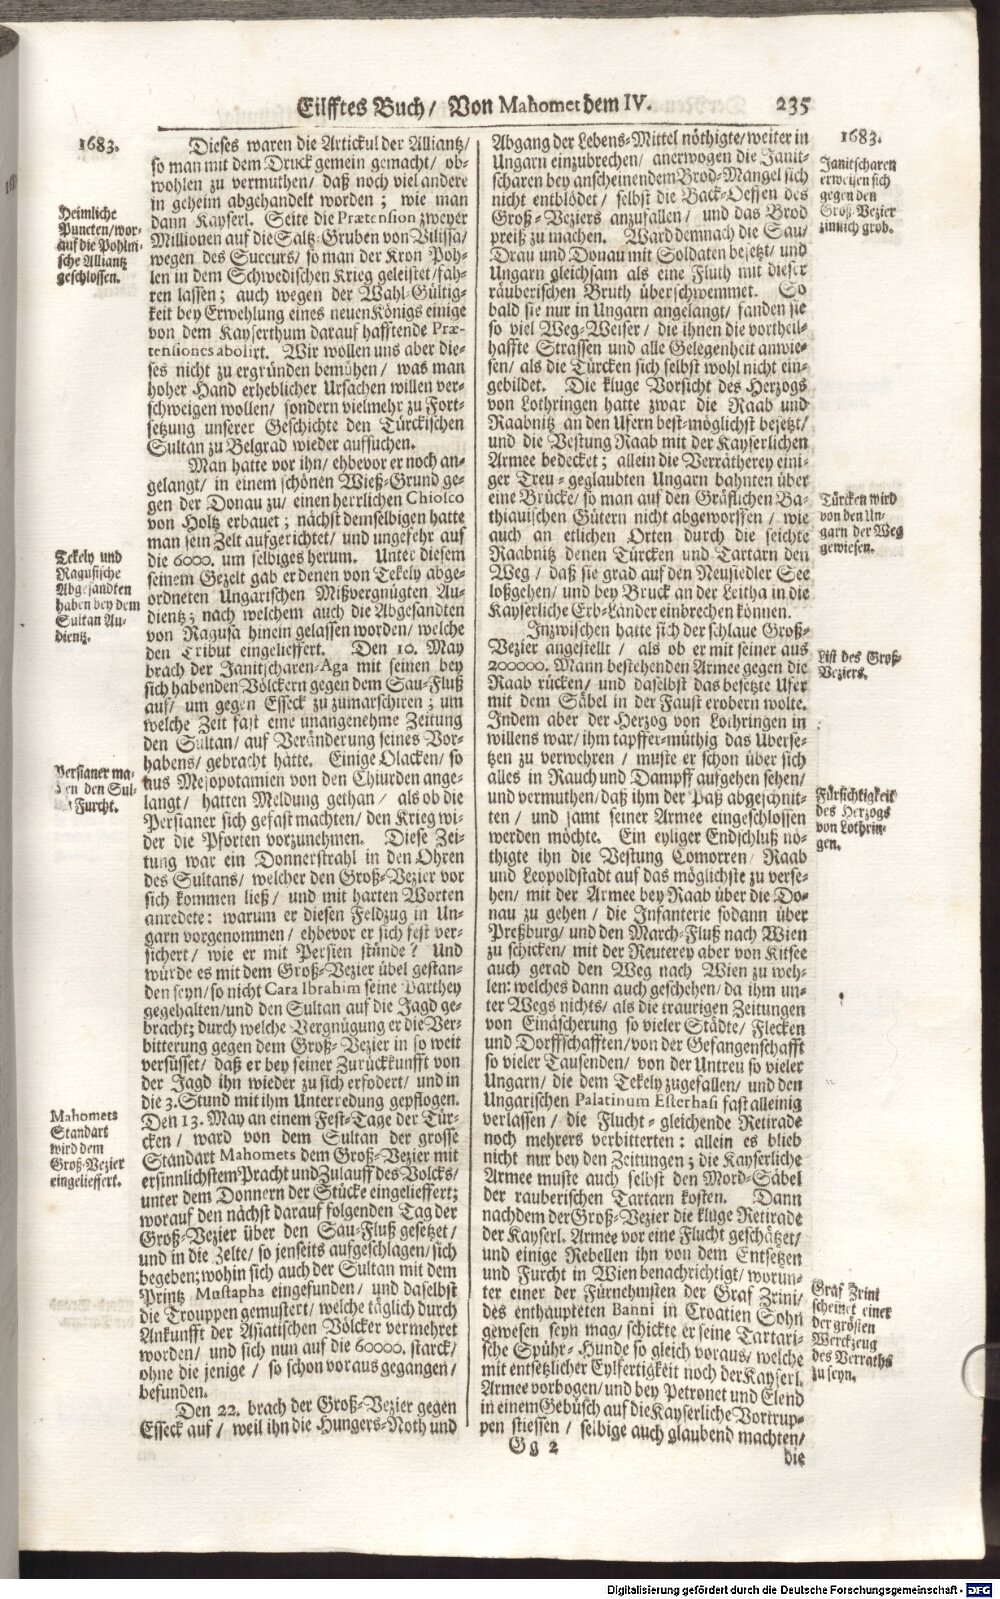 Eilfftes Buch/ Von Mahomet dem IV. 235
1683.
Heimliche
Puncten/ wor-
auf die Pohlni-
sche Alliantz
geschlossen.
Tekely und
Ragusische
Abgesandten
haben bey dem
Sultan Au-
dientz.
Persianer ma-
den Sul-
Furcht.
Mahomets
Standart
wird dem
Groß-Vezier
eingelieffert.
Dieses waren die Artickul der Alliantz/
so man mit dem Druck gemein gemacht/ ob-
wohlen zu vermuthen/ daß noch viel andere
in geheim abgehandelt worden; wie man
dann Kayserl. Seite die Prætension zweyer
Millionen auf die Saltz-Gruben von Vilissa/
wegen des Succurs/ so man der Kron Poh-
len in dem Schwedischen Krieg geleistet/ fah-
ren lassen; auch wegen der Wahl-Gültig-
keit bey Erwehlung eines neuen Königs einige
von dem Kayserthum darauf hafftende Præ-
tensiones abolirt. Wir wollen uns aber die-
ses nicht zu ergründen bemühen/ was man
hoher Hand erheblicher Ursachen willen ver-
schweigen wollen/ sondern vielmehr zu Fort-
setzung unserer Geschichte den Türckischen
Sultan zu Belgrad wieder auffuchen.
Man hatte vor ihn/ ehbevor er noch an-
gelangt/ in einem schönen Wieß-Grund ge-
gen der Donau zu/ einen herrlichen Chiosco
von Holtz erbauet; nächst demselbigen hatte
man sein Zelt aufgerichtet/ und ungefehr auf
die 6000. um selbiges herum. Unter diesem
seinem Gezelt gab er denen von Tekely abge-
ordneten Ungarischen Mißvergnügten Au-
dientz; nach welchem auch die Abgesandten
von Ragusa hinein gelassen worden/ welche
den Tribut eingelieffert. Den 10. May
brach der Janitscharen-Aga mit seinen bey
sich habenden Völckern gegen dem Sau-Fluß
auf/ um gegen Esseck zu zumarschiren; um
welche Zeit fast eine unangenehme Zeitung
den Sultan/ auf Veränderung seines Vor-
habens/ gebracht hatte. Einige Olacken/ so
aus Mesopotamien von den Chiurden ange-
langt/ hatten Meldung gethan/ als ob die
Persianer sich gefast machten/ den Krieg wi-
der die Pforten vorzunehmen. Diese Zei-
tung war ein Donnerstrahl in den Ohren
des Sultans/ welcher den Groß-Vezier vor
sich kommen ließ/ und mit harten Worten
anredete: warum er diesen Feldzug in Un-
garn vorgenommen/ ehbevor er sich fest ver-
sichert/ wie er mit Persien stünde? Und
würde es mit dem Groß-Vezier übel gestan-
den seyn/ so nicht Cara Ibrahim seine Parthey
gegehalten/ und den Sultan auf die Jagd ge-
bracht; durch welche Vergnügung er die Ver-
bitterung gegen dem Groß-Vezier in so weit
versüsset/ daß er bey seiner Zurückkunfft von
der Jagd ihn wieder zu sich erfodert/ und in
die 3. Stund mit ihm Unterredung gepflogen.
Den 13. May an einem Fest-Tage der Tür-
cken/ ward von dem Sultan der grosse
Standart Mahomets dem Groß-Vezier mit
ersinnlichstem Pracht und Zulauff des Volcks/
unter dem Donnern der Stücke eingelieffert;
worauf den nächst darauf folgenden Tag der
Groß-Vezier über den Sau-Fluß gesetzet/
und in die Zelte/ so jenseits aufgeschlagen/ sich
begeben; wohin sich auch der Sultan mit dem
Printz Mustapha eingefunden/ und daselbst
die Trouppen gemustert/ welche täglich durch
Ankunfft der Asiatischen Völcker vermehret
worden/ und sich nun auf die 60000. starck/
ohne die jenige/ so schon voraus gegangen/
befunden.
Den 22. brach der Groß-Vezier gegen
Esseck auf/ weil ihn die Hungers-Noth und
Abgang der Lebens-Mittel nöthigte/ weiter in
Ungarn einzubrechen/ anerwogen die Janit-
scharen bey anscheinendem Brod-Mangel sich
nicht entblödet/ selbst die Back-Oeffen des
Groß-Veziers anzufallen/ und das Brod
preiß zu machen. Ward demnach die Sau/
Drau und Donau mit Soldaten besetzt/ und
Ungarn gleichsam als eine Fluth mit dieser
räuberischen Bruth überschwemmet. So
bald sie nur in Ungarn angelangt/ fanden sie
so viel Weg-Weiser/ die ihnen die vortheil-
haffte Strassen und alle Gelegenheit anwie-
sen/ als die Türcken sich selbst wohl nicht ein-
gebildet. Die kluge Vorsicht des Herzogs
von Lothringen hatte zwar die Raab und
Raabnitz an den Ufern best-möglichst besetzt/
und die Vestung Raab mit der Kayserlichen
Armee bedecket; allein die Verrätherey eini-
ger Treu-geglaubten Ungarn bahnten über
eine Brücke/ so man auf den Gräflichen Ba-
thiauischen Gütern nicht abgeworffen/ wie
auch an etlichen Orten durch die seichte
Raabnitz denen Türcken und Tartarn den
Weg/ daß sie grad auf den Neusiedler See
loßgehen/ und bey Bruck an der Leitha in die
Kayserliche Erb-Länder einbrechen können.
Inzwischen hatte sich der schlaue Groß-
Vezier angestellt/ als ob er mit seiner aus
200000. Mann bestehenden Armee gegen die
Raab rücken/ und daselbst das besetzte Ufer
mit dem Säbel in der Faust erobern wolte.
Indem aber der Herzog von Lothringen in
willens war/ ihm tapffer-müthig das Überse-
tzen zu verwehren/ muste er schon über sich
alles in Rauch und Dampff aufgehen sehen/
und vermuthen/ daß ihm der Paß abgeschnit-
ten/ und samt seiner Armee eingeschlossen
werden möchte. Ein eyliger Endschluß nö-
thigte ihn die Vestung Comorren/ Raab
und Leopoldstadt auf das möglichste zu verse-
hen/ mit der Armee bey Raab über die Do-
nau zu gehen/ die Infanterie sodann über
Preßburg/ und den March-Fluß nach Wien
zu schicken/ mit der Reuterey aber von Kitsee
auch gerad den Weg nach Wien zu weh-
len: welches dann auch geschehen/ da ihm un-
ter Wegs nichts/ als die traurigen Zeitungen
von Einäscherung so vieler Städte/ Flecken
und Dorffschafften/ von der Gefangenschafft
so vieler Tausenden/ von der Untreu so vieler
Ungarn/ die dem Tekely zugefallen/ und den
Ungarischen Palatinum Esterhasi fast alleinig
verlassen/ die Flucht-gleichende Retirade
noch mehrers verbitterten: allein es blieb
nicht nur bey den Zeitungen; die Kayserliche
Armee muste auch selbst den Mord-Säbel
der rauberischen Tartarn kosten. Dann
nachdem der Groß-Vezier die kluge Retirade
der Kayserl. Armee vor eine Flucht geschätzet/
und einige Rebellen ihn von dem Entsetzen
und Furcht in Wien benachrichtigt/ worun-
ter einer der Fürnehmsten der Graf Zrini/
des enthaupteten Banni in Croatien Sohn
gewesen seyn mag/ schickte er seine Tartari-
sche Spühr-Hunde so gleich voraus/ welche
mit entsetzlicher Eylfertigkeit noch der Kayserl.
Armee vorbogen/ und bey Petronet und Elend
in einem Gebüsch auf die Kayserliche Vortrup-
pen stiessen/ selbige auch glaubend machten/
Gg 2
die
1683.
Janitscharen
erweisen sich
gegen den
Groß-Vezier
zimlich grob.
Türcken wird
von den Un-
garn der Weg
gewiesen.
List des Groß-
Veziers.
Fürsichtigkeit
des Herzogs
von Lothrin-
gen.
Graf Zrini
scheinet einer
der grösten
Werckzeug
des Verraths
zu seyn.
Digitalisierung gefördert durch die Deutsche Forschungsgemeinschaft - DFG